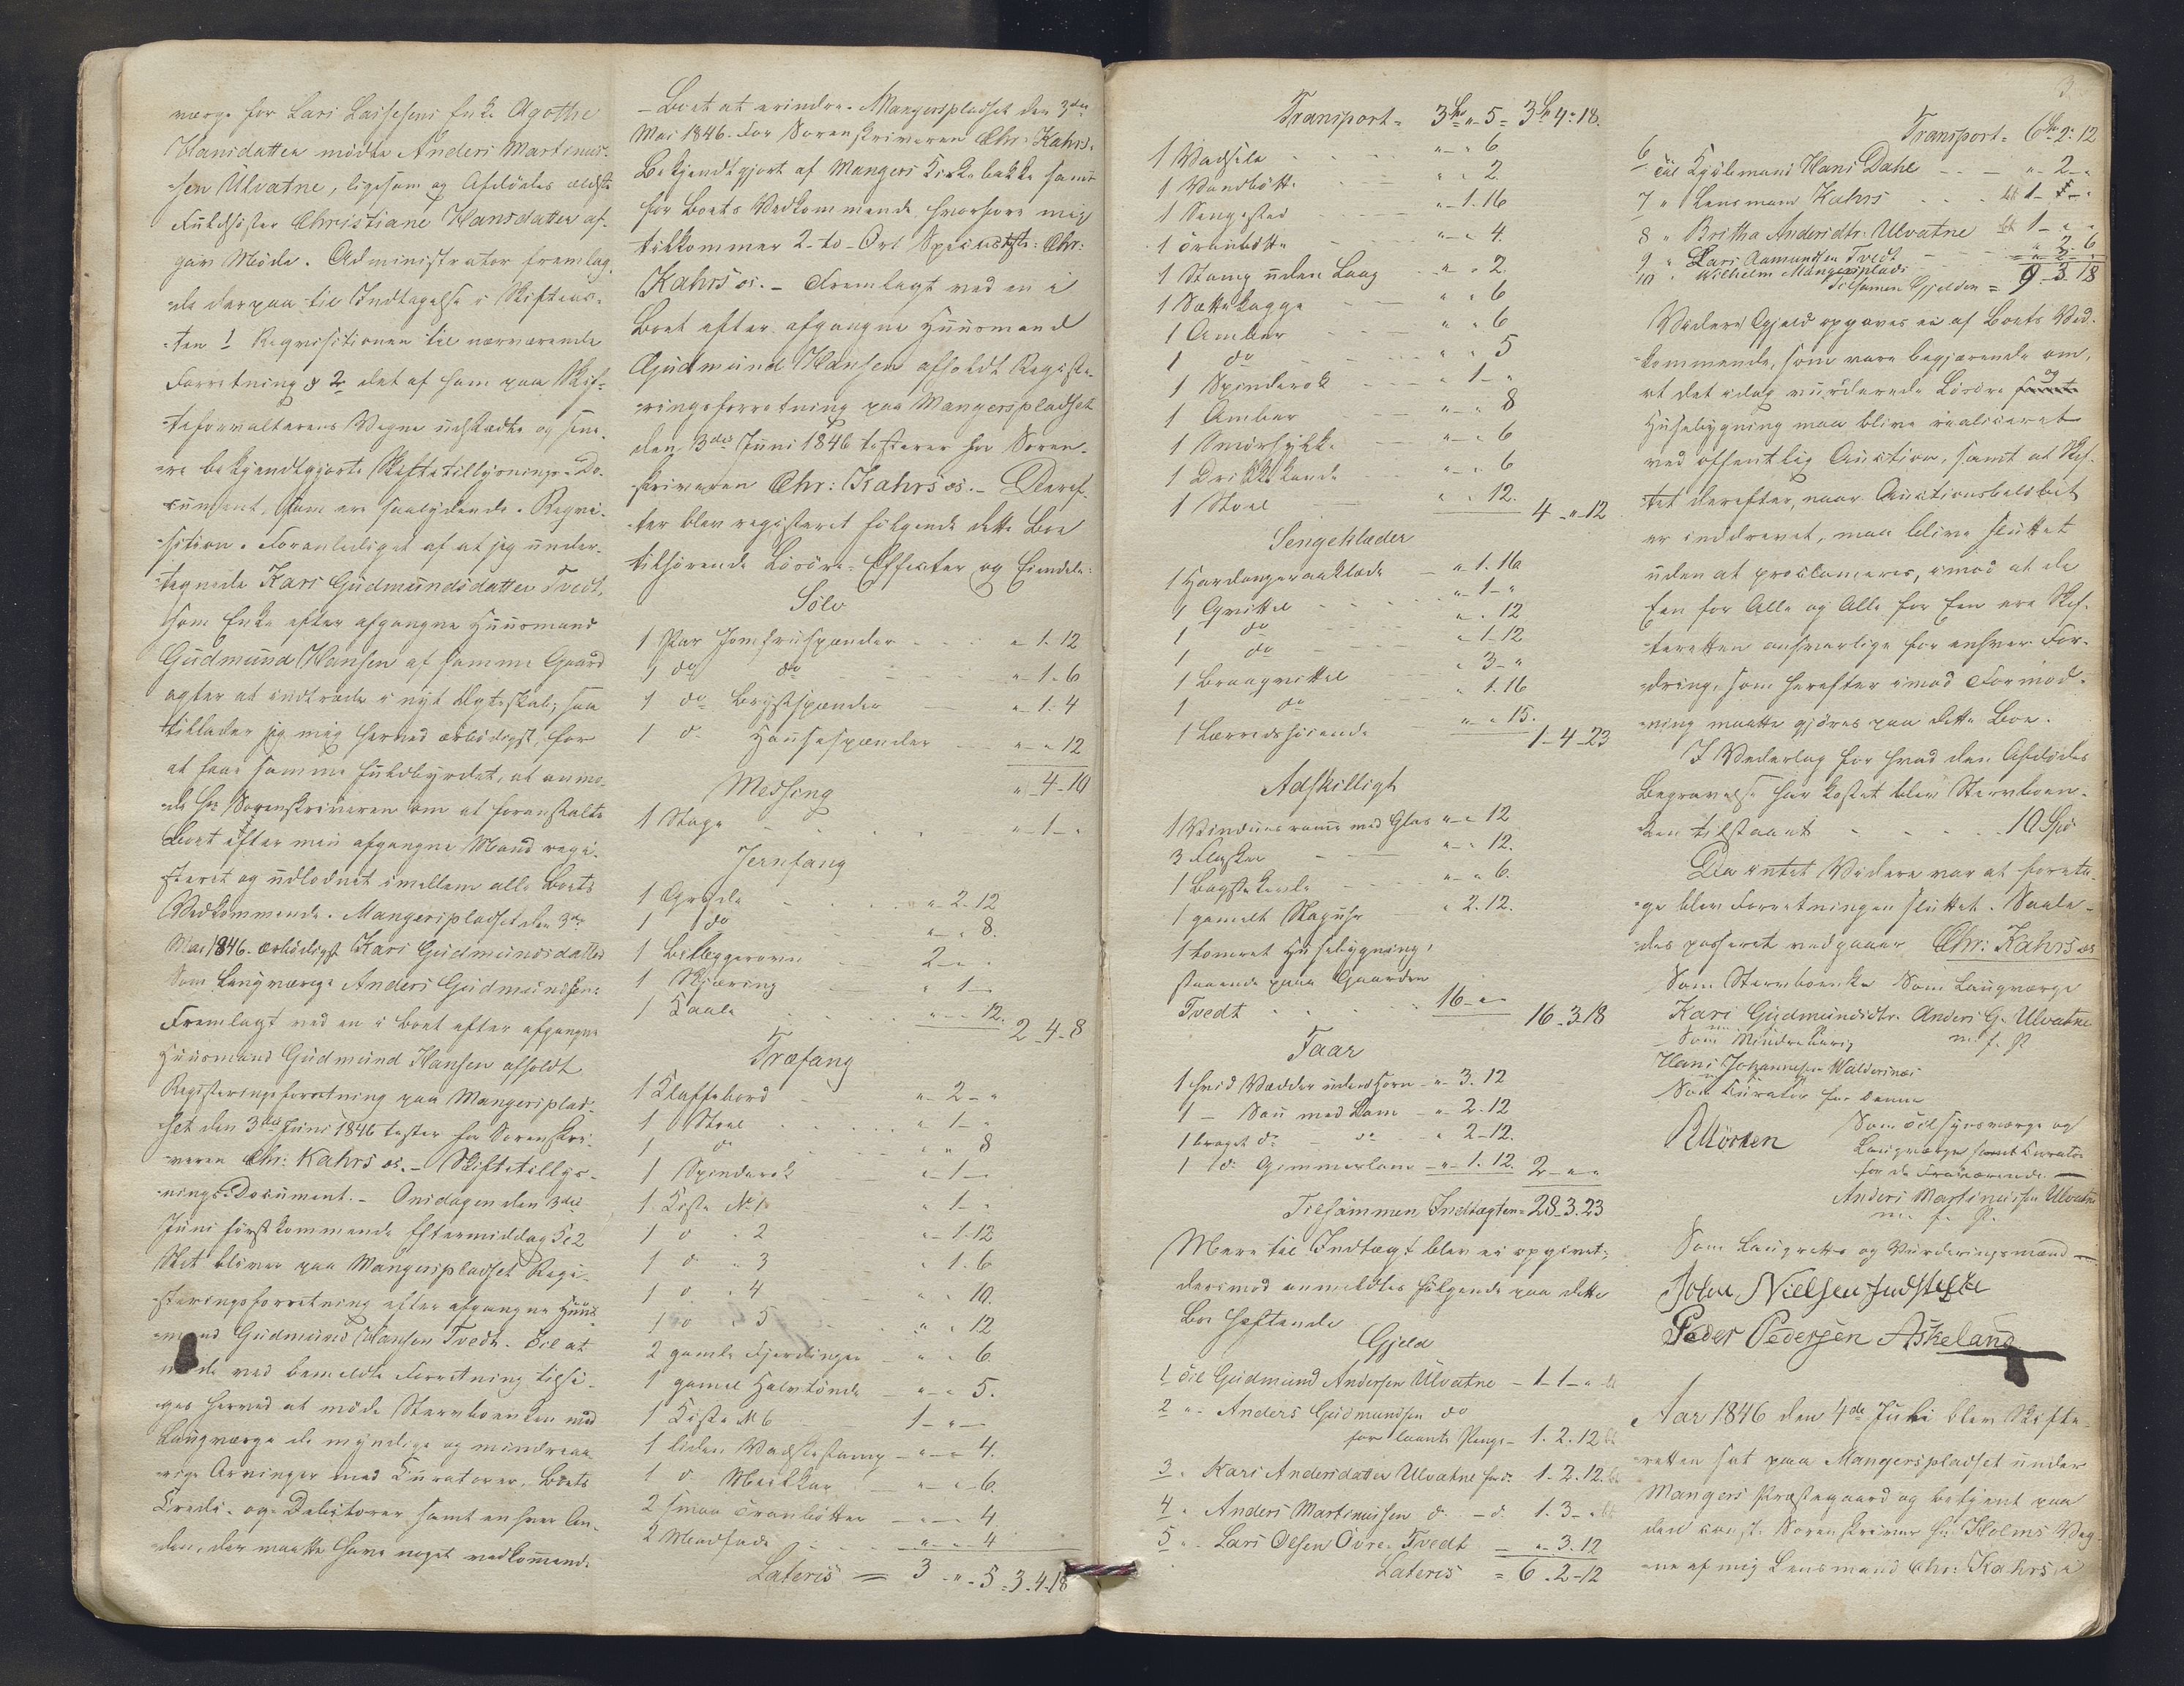 værge for Lars Larssens Enke Agothe
Hansdatter mødte Anders Martinus-
sen Ulvatne, ligesom og Afdødes ældste
Fuldsøster Christiane Hansdatter af-
gav Møde. Administrator fremlag-
de derpaa til Indtagelse i Skifteac-
ten 1 Reqvisitionen til nærværende
Forretning & 2 det af ham paa Skif-
teforvalterens Vegne udstædte og sene-
re bekjendtgjorte Skiftetillysnings-Do-
cument, som ere saalydende. Reqvi-
sition. Foranlediget af at jeg under-
tegnede Kari Gudmundsdatter Tvedt,
som Enke efter afgangne Huusmand
Gudmund Hansen af samme Gaard
agter at indtræde i nyt Ægteskab, saa
tillader jeg mig herved ærbødigst, for
at faae samme fuldbyrdet, at anmo-
de Hr Sorenskriveren om at foranstalte
Boet efter min afgangne Mand regi-
steret og udlodnet imellem alle Boets
Vedkommende. Mangerspladset den 3de
Mai 1846. ærbødigst Kari Gudmundsdatter
Som Laugværge Anders Gudmundsen
Fremlagt ved en i Boet efter afgangne
Huusmand Gudmund Hansen afholdt
Registeringsforretning paa Mangersplad-
set den 3die Juni 1846 tester for Sorenskri-
veren Chr: Kahrs cs. - Skiftetillys-
nings-Document. - Onsdagen den 3die
Juni førstkommende Eftermiddag Kl 2
Slet bliver paa Mangerspladset Regi-
steringsforretning efter afgangne Huus-
mand Gudmund Hansen Tvedt. Til at
møde ved bemeldte Forretning tilsi-
ges herved at møde Stervboenken med
Laugværge de myndige og mindreaa-
rige Arvinger med Curatorer, Boets
Credi- og Debitorer samt enhver An-
den, der maatte have noget vedkommende
Boet at erindre. Mangerspladset den 3die
Mai 1846. For Sorenskriveren Chr: Kahrs.
Bekjendtgjort af Mangers Kirkebakke samt
for Boets Vedkommende hvorfore mig
tilkommer 2-to-Ort Specie Chr:
Kahrs cs. - Fremlagt ved en i
Boet efter afgangne Huusmand
Gudmund Hansen afholdt Registe-
ringsforretning paa Mangerspladset
den 3die Juni 1846 testerer for Soren-
skriveren Chr: Kahrs cs. - Deref-
ter blev registeret følgende dette Boe
tilhørende Løsøre-Effecter og Eiendele:
Sølv
1 Par Jomfruspænder - " 1. 12
1 do do - " 1 - 6
1 do Brystspænder - " 1. 4
1 d. Hansespænder - " - " 12
" 4 - 10
Messing
1 Stage - " 1 - "
Jernfang
1 Gryde - " 2 - 12
1 do - " " 8.
1 Bilæggerovn 2 - " -
1 Skjæring " 1 -
1 Saale " - " 12. 2 - 4 - 8
Træfang
1 Klaffebord - " 2 - "
1 Stoel " 1 - "
1 d. " " 8
1 Spinderok " 1 -
1 Kiste No 1 " 1 - "
1 d " 2 " 1 - 12
1 d " 3 " 1. 6
1 d " 4 " " 10.
1 d " 5 " " 12
2 gamle Fjerdinger - " " 6.
1 gamel Halvtønde - " - " 5.
1 Kiste No 6 1 - " -
1 liden Vadskestamp - " - " 4.
1 d. Meelkar - " - " 6.
2 smaa Tranbøtter - " - 4
2 Meelfade - " - " 4
Lateris = 3 - " - 5 = 3. 4. 18
Transport = 3 " - 5 = 3 4 - 18.
1 Vadsele " - " 6
1 Vandbøtte " " 2.
1 Sengested " 1. 16
1 Ørenbøtte " " 4.
1 Stamp uden Laag - " " 2
1 Søttekagge " " 6
1 Ambar " " 6
1 do " " 5
1 Spinderok " 1 - "
1 Ambar " - " 8
1 Smørstykke " - " 6
1 Drikkekande " - " 6
1 Stoel " " 12. 4 - " - 12
Sengeklæder
1 Hardangeraaklæde - " 1. 16
1 Qvittel " 1 - "
1 do " " 12
1 do " 1 - 12
1 Bragqvittel " 3 - "
1 do " 1. 16
1 Lærredshiende " - " 15. 1 - 4 - 23
Adskilligt
1 Vinduesramme med Glas " - " 12
3 Flasker " - " 12.
1 Bagstekanle " - " 6.
1 gamelt Staguhr " 2. 12.
1 tomret Husebygning,
staaende paa Gaarden
Tvedt 16 - " - 16 - 3. 18
Faar
1 hvid Vædder uden Horn - " - 3. 12
1 - Sau med Lam - " 2 - 12
1 braget do - do - " 2 - 12.
1 do Gimmerlam - " 1. 12. 2 - " - "
Tilsammen Indtægten = 28 - 3. 23
Mere til Indtægt blev ei opgivet;
derimod anmeldtes følgende paa dette
Boe heftende
Gjeld
1 til Gudmund Andersen Ulvatne - 1 - 1 - "
2 " Anders Gudmundsen do
for laante Penge - 1. 2. 12
3 " Kari Andersdatter Ulvatne for d. 1 - 2. 12.
4 " Anders Martinussen d. - d. 1. 3 - "
5 " Lars Olsen Øvre-Tvedt - " 3. 12
Lateris = 6 - 2 - 12
3
Transport = 6 2 - 12
6 til Kjøbmand Hans Dahl - " - 2 - "
7 " Lensmand Kahrs 1 - " - "
8 " Britha Andersdtr. Ulvatne 1 - " "
9 " Lars Aamundsen Tvedt " 2 - 6
10 " Wilhelm Mangersplads = " 2 - "
Tilsamen Gjelden = 9 - 3. 18
Videre Gjeld opgaves ei af Boets Ved-
kommende, som vare begjærende om,
at det idag vurderede Løsøre og
Husebygning maa blive realiseret
ved offentlig Auction, samt at Skif-
tet derefter, naar Auctionsbeløbet
er inddrevet, maa blive sluttet
uden at proclameres, imod at de
Een for Alle og Alle for Een ere Skif-
teretten ansvarlige for enhver For-
dring, som herefter imod Formod-
ning maatte gjøres paa dette Boe.
I Vederlag for hvad den Afdødes
Begravelse har kostet blev Stervboen-
ken tilstaaet - 10 Spd
Da intet Videre var at foreta-
ge blev Forretningen sluttet. Saale-
des passeret vedgaaer Chr: Kahrs cs
Som Stervboenke Som Laugværge
Kari Gudmundsdtr. Anders G. Ulvatne
m. f. P
Som Mindreaarig
Hans Johannesen Waldersnæs
Som Curator for denne
Som Tilsynsværge og
Laugværge samt Curator
for de Fraværende
Anders Martinussen Ulvatne
m. f. P.
Som Laugrette og Vurderingsmænd
John Nielsen Indstelle
Peder Pedersen Askeland
Aar 1846 den 4de Juli blev Skifte-
retten sat paa Mangerspladset under
Mangers Præstegaard og betjent paa
den const. Sorenskriver Hr. Holms Veg-
ne af mig Lensmand Chr: Kahrs i